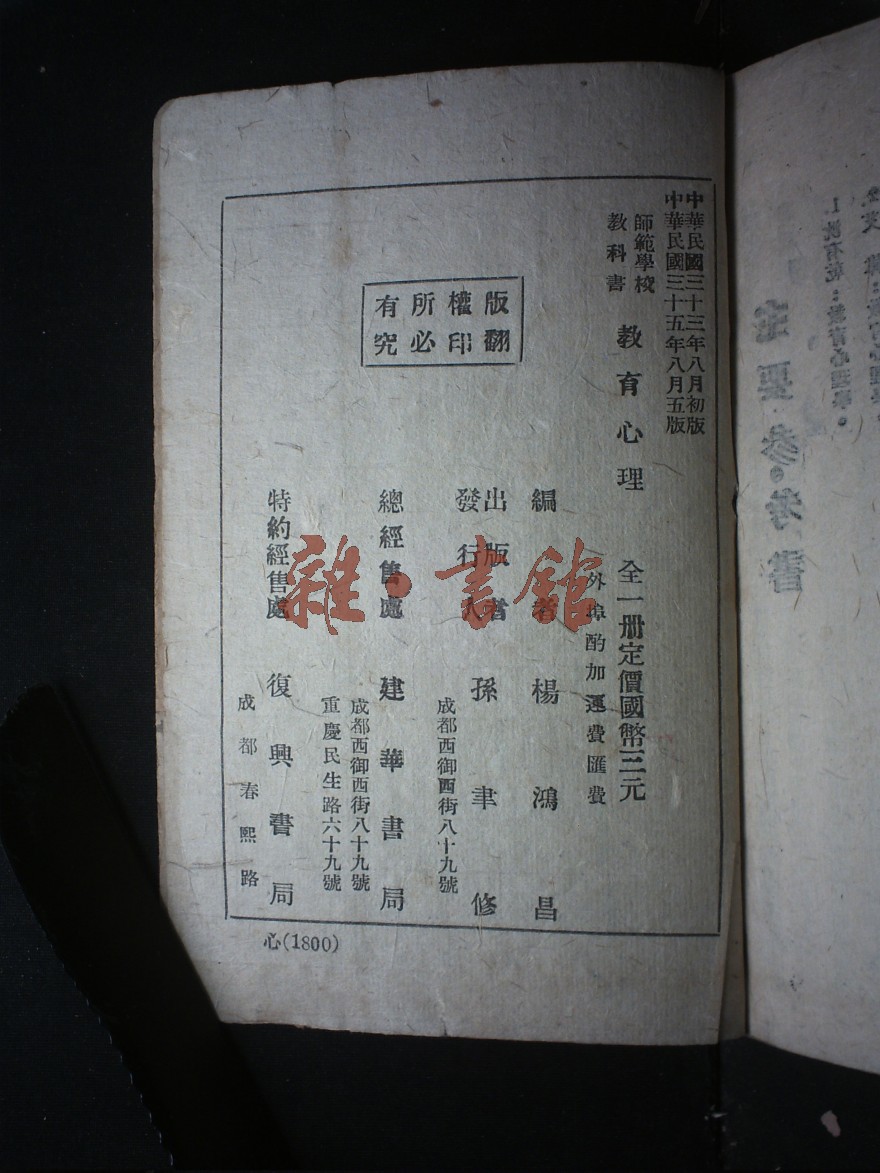 中華民國三十三年八月初版
中華民國三十五年八月五版
師範學校
教科書
教育心理
全一册定價國幣三元
外埠酌加運費匯費
版權所有
翻印必究
編著者 楊鴻昌
出版者
發行人
孫聿修
成都西御西街八十九號
總經售處 建華書局
成都西御西街八十九號
重慶民生路六十九號
特約經售處 復興書局
成都春熙路
心(1800)
雜·書館
主要參考書